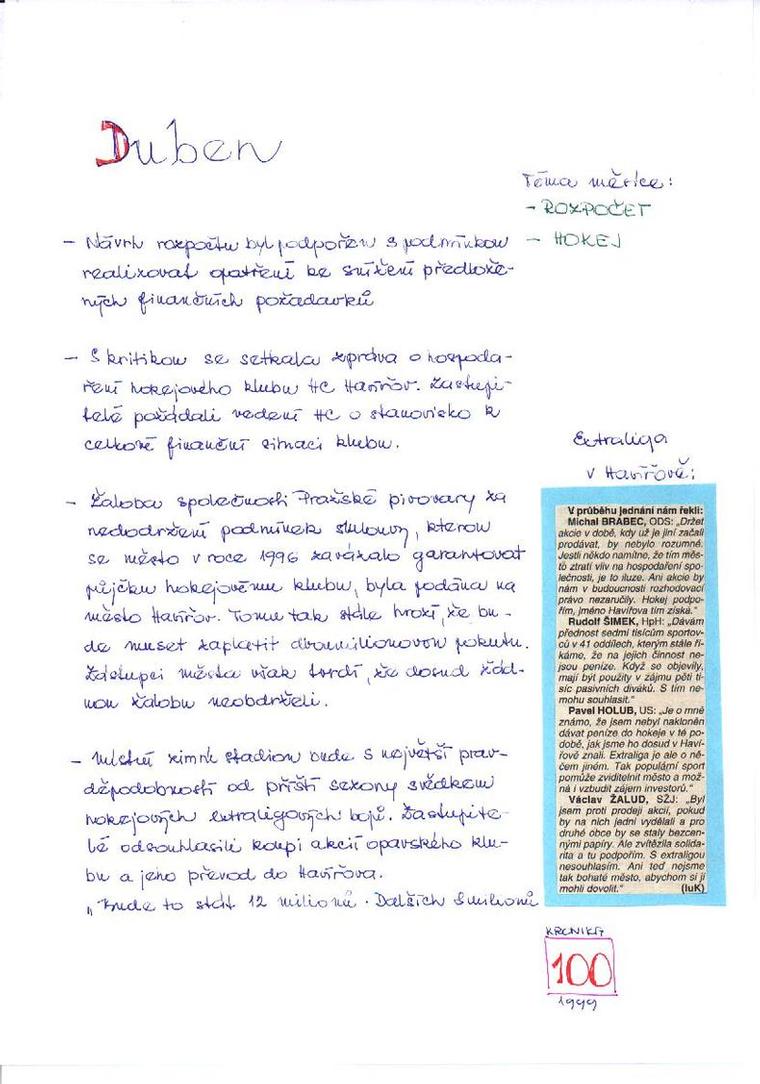 Duben
Téma měsíce:
- ROZPOČET
- HOKEJ
- Návrh rozpočtu byl podpořen s podmínkou
realizovat opatření ke snížení předlože-
ných finančních požadavků
- S kritikou se setkala zpráva o hospoda-
ření hokejového klubu HC Havířov. Zastupi-
telé požádali vedení HC o stanovisko k
celkové finanční situaci klubu.
- Žaloba společnosti Pražské pivovary za
nedodržení podmínek smlouvy, kterou
se město v roce 1996 zavázalo garantovat
půjčku hokejovému klubu, byla podána na
město Havířov. Tomu tak stále hrozí, že bu-
de muset zaplatit dvoumilionovou pokutu.
Zástupci města však tvrdí, že dosud žád-
nou žalobu neobdrželi.
- Místní zimní stadion bude s největší prav-
děpodobností od příští sezony svědkem
hokejových extraligových bojů. Zastupite-
lé odsouhlasili koupi akcií opavského klu-
bu a jeho převod do Havířova.
"Bude to stát 12 milionů. Dalších 8 milionů
Extraliga
v Havířově:
V průběhu jednání nám řekli:
Michal BRABEC, ODS: „Držet
akcie v době, kdy už je jiní začali
prodávat, by nebylo rozumné.
Jestli někdo namítne, že tím měs-
to ztratí vliv na hospodaření spo-
lečnosti, je to iluze. Ani akcie by
nám v budoucnosti rozhodovací
právo nezaručily. Hokej podpo-
řím, jméno Havířova tím získá."
Rudolf ŠIMEK, HpH: „Dávám
přednost sedmi tisícům sportov-
ců v 41 oddílech, kterým stále ří-
káme, že na jejich činnost ne-
jsou peníze. Když se objevily,
mají být použity v zájmu pěti ti-
síc pasivních diváků. S tím ne-
mohu souhlasit."
Pavel HOLUB, US: „Je o mně
známo, že jsem nebyl nakloněn
dávat peníze do hokeje v té po-
době, jak jsme ho dosud v Haví-
řově znali. Extraliga je ale o ně-
čem jiném. Tak populární sport
pomůže zviditelnit město a mož-
ná i vzbudit zájem investorů."
Václav ŽALUD, SŽJ: „Byl
jsem proti prodeji akcií, pokud
by na nich jední vydělali a pro
druhé obce by se staly bezcen-
nými papíry. Ale zvítězila solida-
rita a tu podpořím. S extraligou
nesouhlasím. Ani teď nejsme
tak bohaté město, abychom si ji
mohli dovolit." (luK)
KRONIKA
100
1999